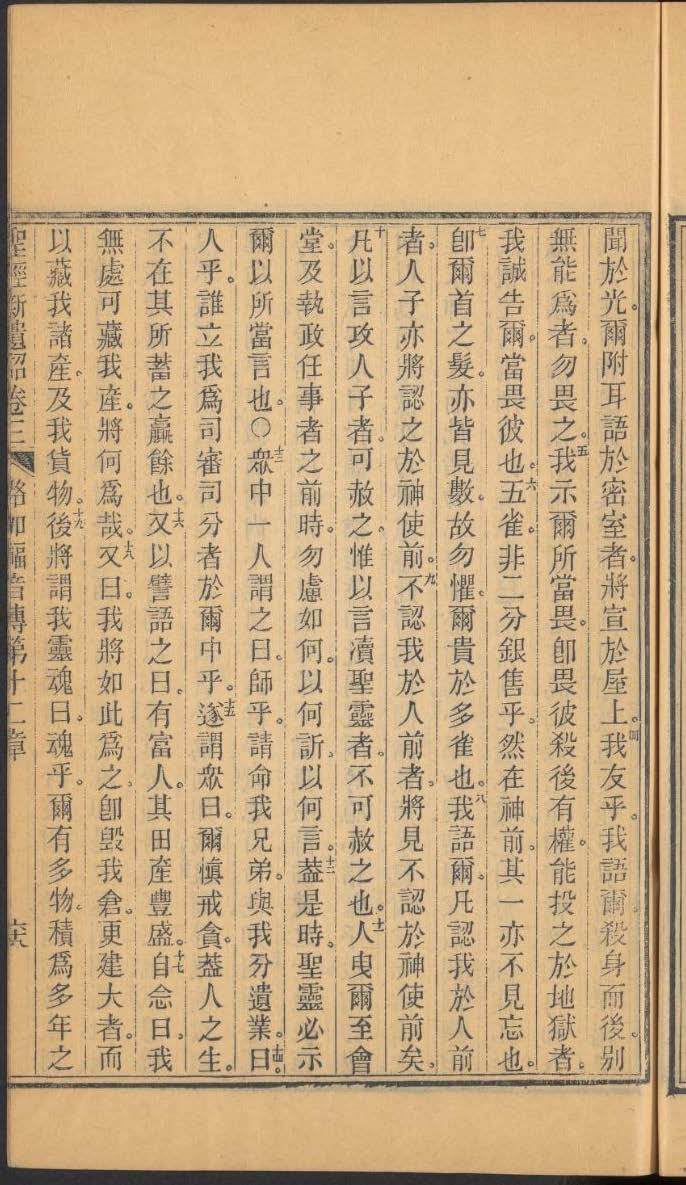 聞於光。爾附耳語於密室者。將宣於屋上。四我友乎。我語爾。殺身而後。別
無能爲者。勿畏之。五我示爾所當畏。卽畏彼殺後有權。能投之於地獄者。
我誠吿爾。當畏彼也。六五雀。非二分銀售乎。然在神前。其一亦不見忘也。
七卽爾首之髮。亦皆見數。故勿懼。爾貴於多雀也。八我語爾。凡認我於人前
者。人子亦將認之於神使前。九不認我於人前者。將見不認於神使前矣。
十凡以言攻人子者。可赦之。惟以言瀆聖靈者。不可赦之也。十一人曳爾至會
堂。及執政任事者之前時。勿慮如何。以何訴。以何言。十二蓋是時。聖靈必示
爾以所當言也。〇十三衆中一人謂之曰。師乎。請命我兄弟。與我分遺業。十四曰。
人乎。誰立我爲司審司分者於爾中乎。十五遂謂衆曰。爾愼戒貪。蓋人之生。
不在其所蓄之贏餘也。十六又以譬語之曰。有富人。其田產豐盛。十七自念曰。我
無處可藏我產。將何爲哉。十八又曰。我將如此爲之。卽毀我倉。更建大者。而
以藏我諸產。及我貨物。十九後將謂我靈魂曰。魂乎。爾有多物。積爲多年之
聖經新遺詔卷三 路加福音傳第十二章